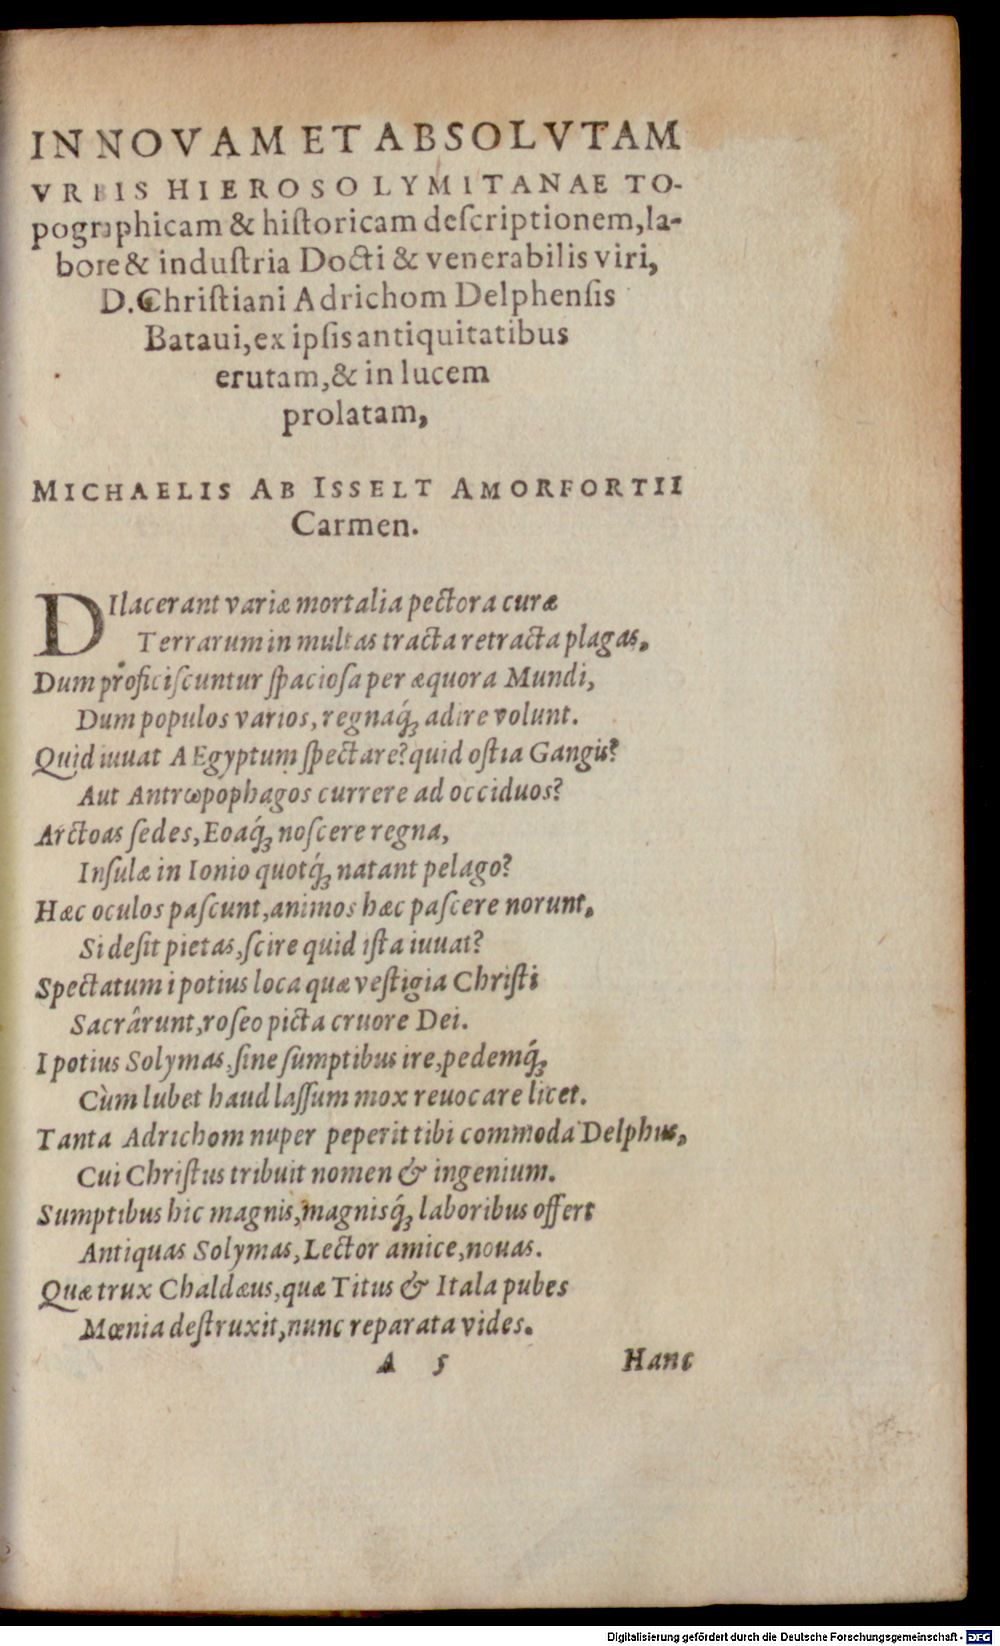 IN NOVAM ET ABSOLVTAM
VRBIS HIEROSOLYMITANAE TO-
pographicam & historicam descriptionem, la-
bore & industria Docti & venerabilis viri,
D. Christiani Adrichom Delphensis
Bataui, ex ipsis antiquitatibus
erutam, & in lucem
prolatam,
MICHAELIS AB ISSELT AMORFORTII
Carmen.
DIlacerant variæ mortalia pectora curæ
Terrarum in multas tracta retracta plagas,
Dum proficiscuntur spaciosa per æquora Mundi,
Dum populos varios, regnaq́ꝫ adire volunt.
Quid iuuat AEgyptum spectare? quid ostia Gangis?
Aut Antrωpophagos currere ad occiduos?
Arctoas sedes, Eoaq́ꝫ noscere regna,
Insulæ in Ionio quotq́ꝫ natant pelago?
Hæc oculos pascunt, animos hæc pascere norunt,
Si desit pietas, scire quid ista iuuat?
Spectatum i potius loca quæ vestigia Christi
Sacrârunt, roseo picta cruore Dei.
I potius Solymas, sine sumptibus ire, pedemq́ꝫ
Cùm lubet haud lassum mox reuocare licet.
Tanta Adrichom nuper peperit tibi commoda Delphus,
Cui Christus tribuit nomen & ingenium.
Sumptibus hic magnis, magnisq́ꝫ laboribus offert
Antiquas Solymas, Lector amice, nouas.
Quæ trux Chaldæus, quæ Titus & Itala pubes
Mœnia destruxit, nunc reparata vides.
A 5 Hanc
Digitalisierung gefördert durch die Deutsche Forschungsgemeinschaft - DFG